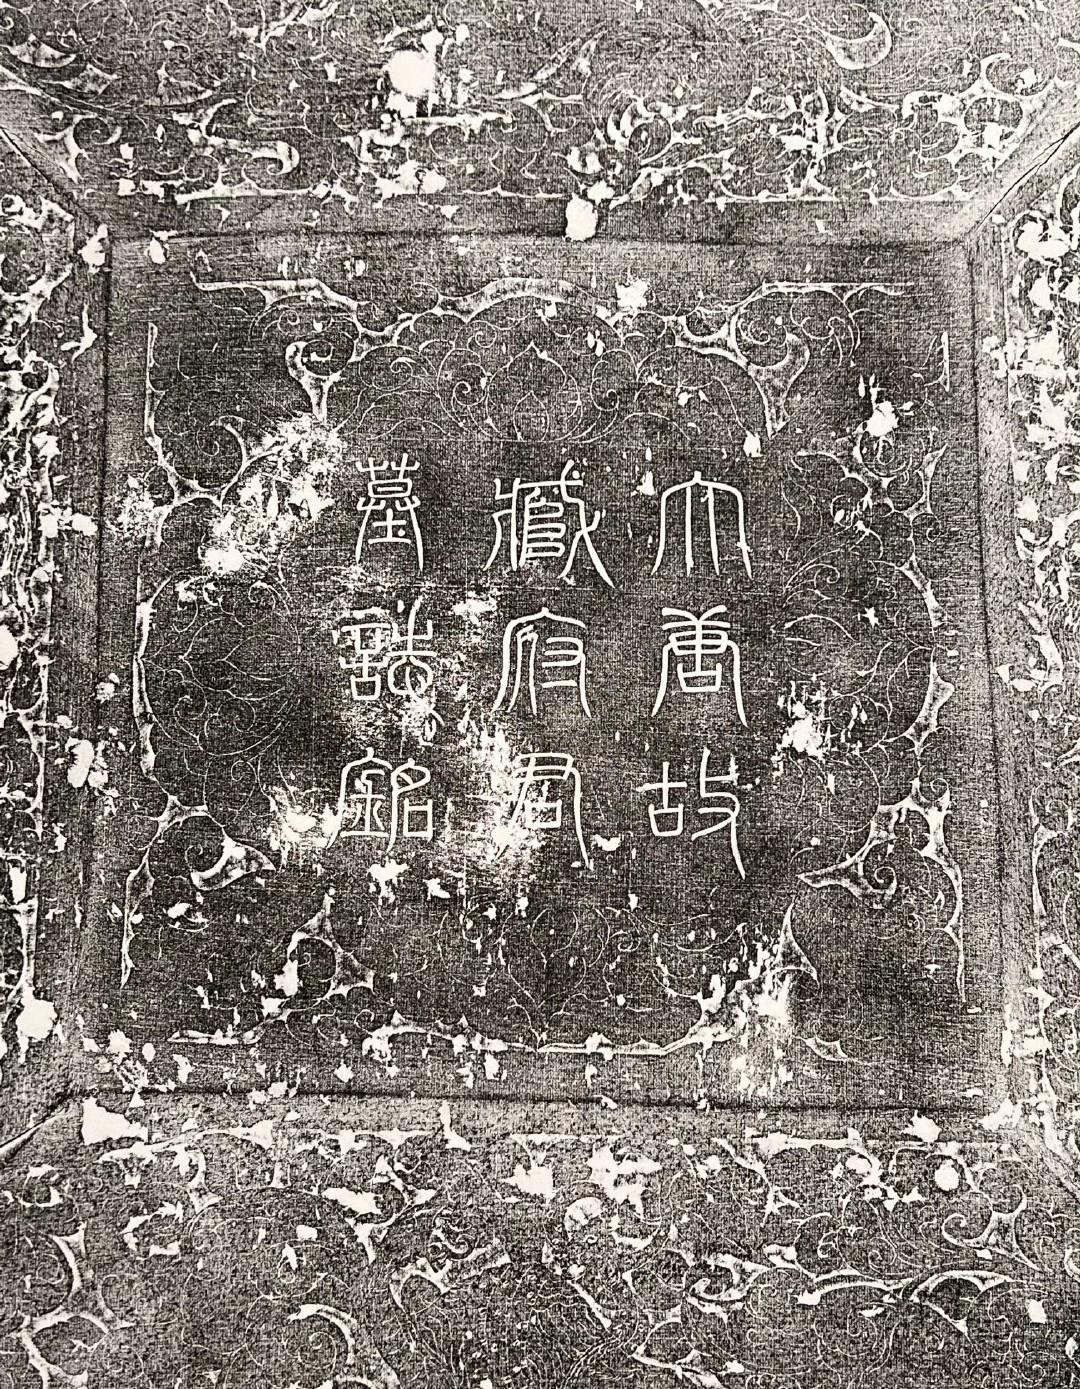 大唐故
臧府君
墓誌銘